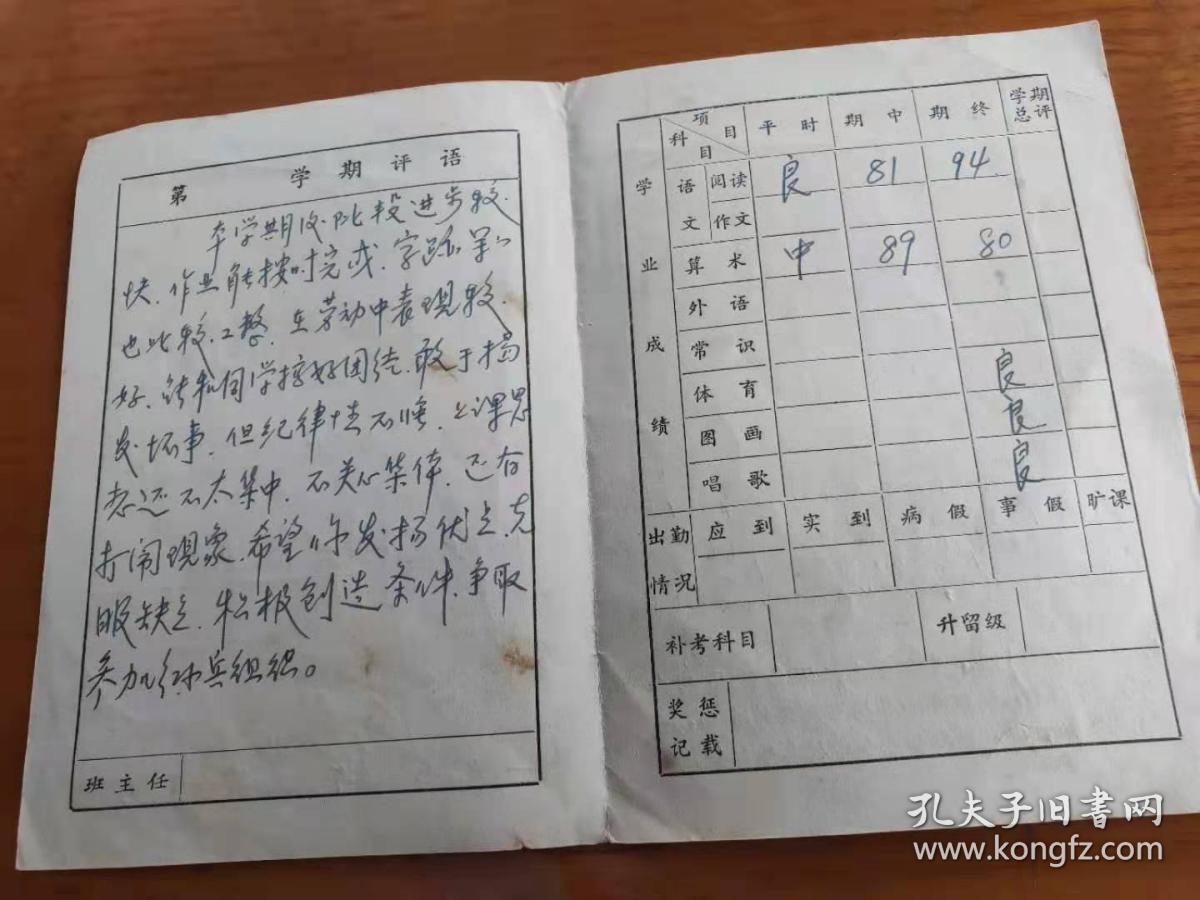 第 学期评语
本学期后阶段进步较
快、作业能按时完成、字迹
也比较工整、在劳动中表现较
好、能和同学搞好团结、敢于揭
发坏事、但纪律性不强、上课思
想还不太集中、不关心集体、还有
打闹现象、希望你发扬优点、克
服缺点、积极创造条件、争取
参加红小兵组织。
班主任
项目
科目
平时 期中 期终 学期总评
学业成绩
语文 阅读 良 81 94
作文
算术 中 89 80
外语
常识
体育 良
图画 良
唱歌 良
出勤情况 应到 实到 病假 事假 旷课
补考科目 升留级
奖惩记载
孔夫子旧书网
www.kongfz.com